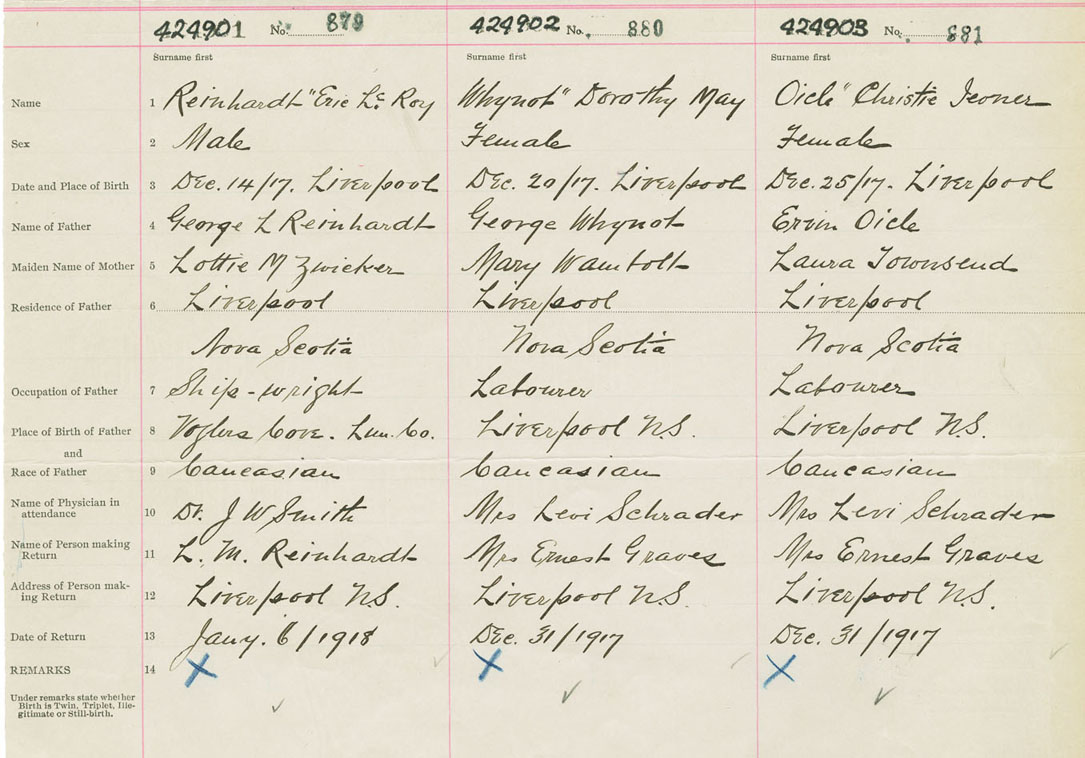 424901 No. 879 424902 No. 880 424903 No. 881
Surname first Surname first Surname first
Name 1 Reinhardt "Eric Le Roy Whynot" Dorothy May Oicle" Christie
Sex 2 Male Female Female
Date and Place of Birth 3 Dec. 14/17. Liverpool Dec. 20/17. Liverpool Dec. 25/17. Liverpool
Name of Father 4 George L Reinhardt George Whynot Ervin Oicle
Maiden Name of Mother 5 Lottie M Zwicker Mary Wambolt Laura Townsend
Residence of Father 6 Liverpool Liverpool Liverpool
Nova Scotia Nova Scotia Nova Scotia
Occupation of Father 7 Ship-wright Labourer Labourer
Place of Birth of Father 8 Voglers Cove. Lun. Co. Liverpool N.S. Liverpool N.S.
and
Race of Father 9 Caucasian Caucasian Caucasian
Name of Physician in
attendance 10 Dr. J W Smith Mrs Levi Schrader Mrs Levi Schrader
Name of Person making
Return 11 L. M. Reinhardt Mrs Ernest Graves Mrs Ernest Graves
Address of Person mak-
ing Return 12 Liverpool N.S. Liverpool N.S. Liverpool N.S.
Date of Return 13 Jany. 6/1918 Dec. 31/1917 Dec. 31/1917
REMARKS 14
Under remarks state whether
Birth is Twin, Triplet, Ille-
gitimate or Still-birth.